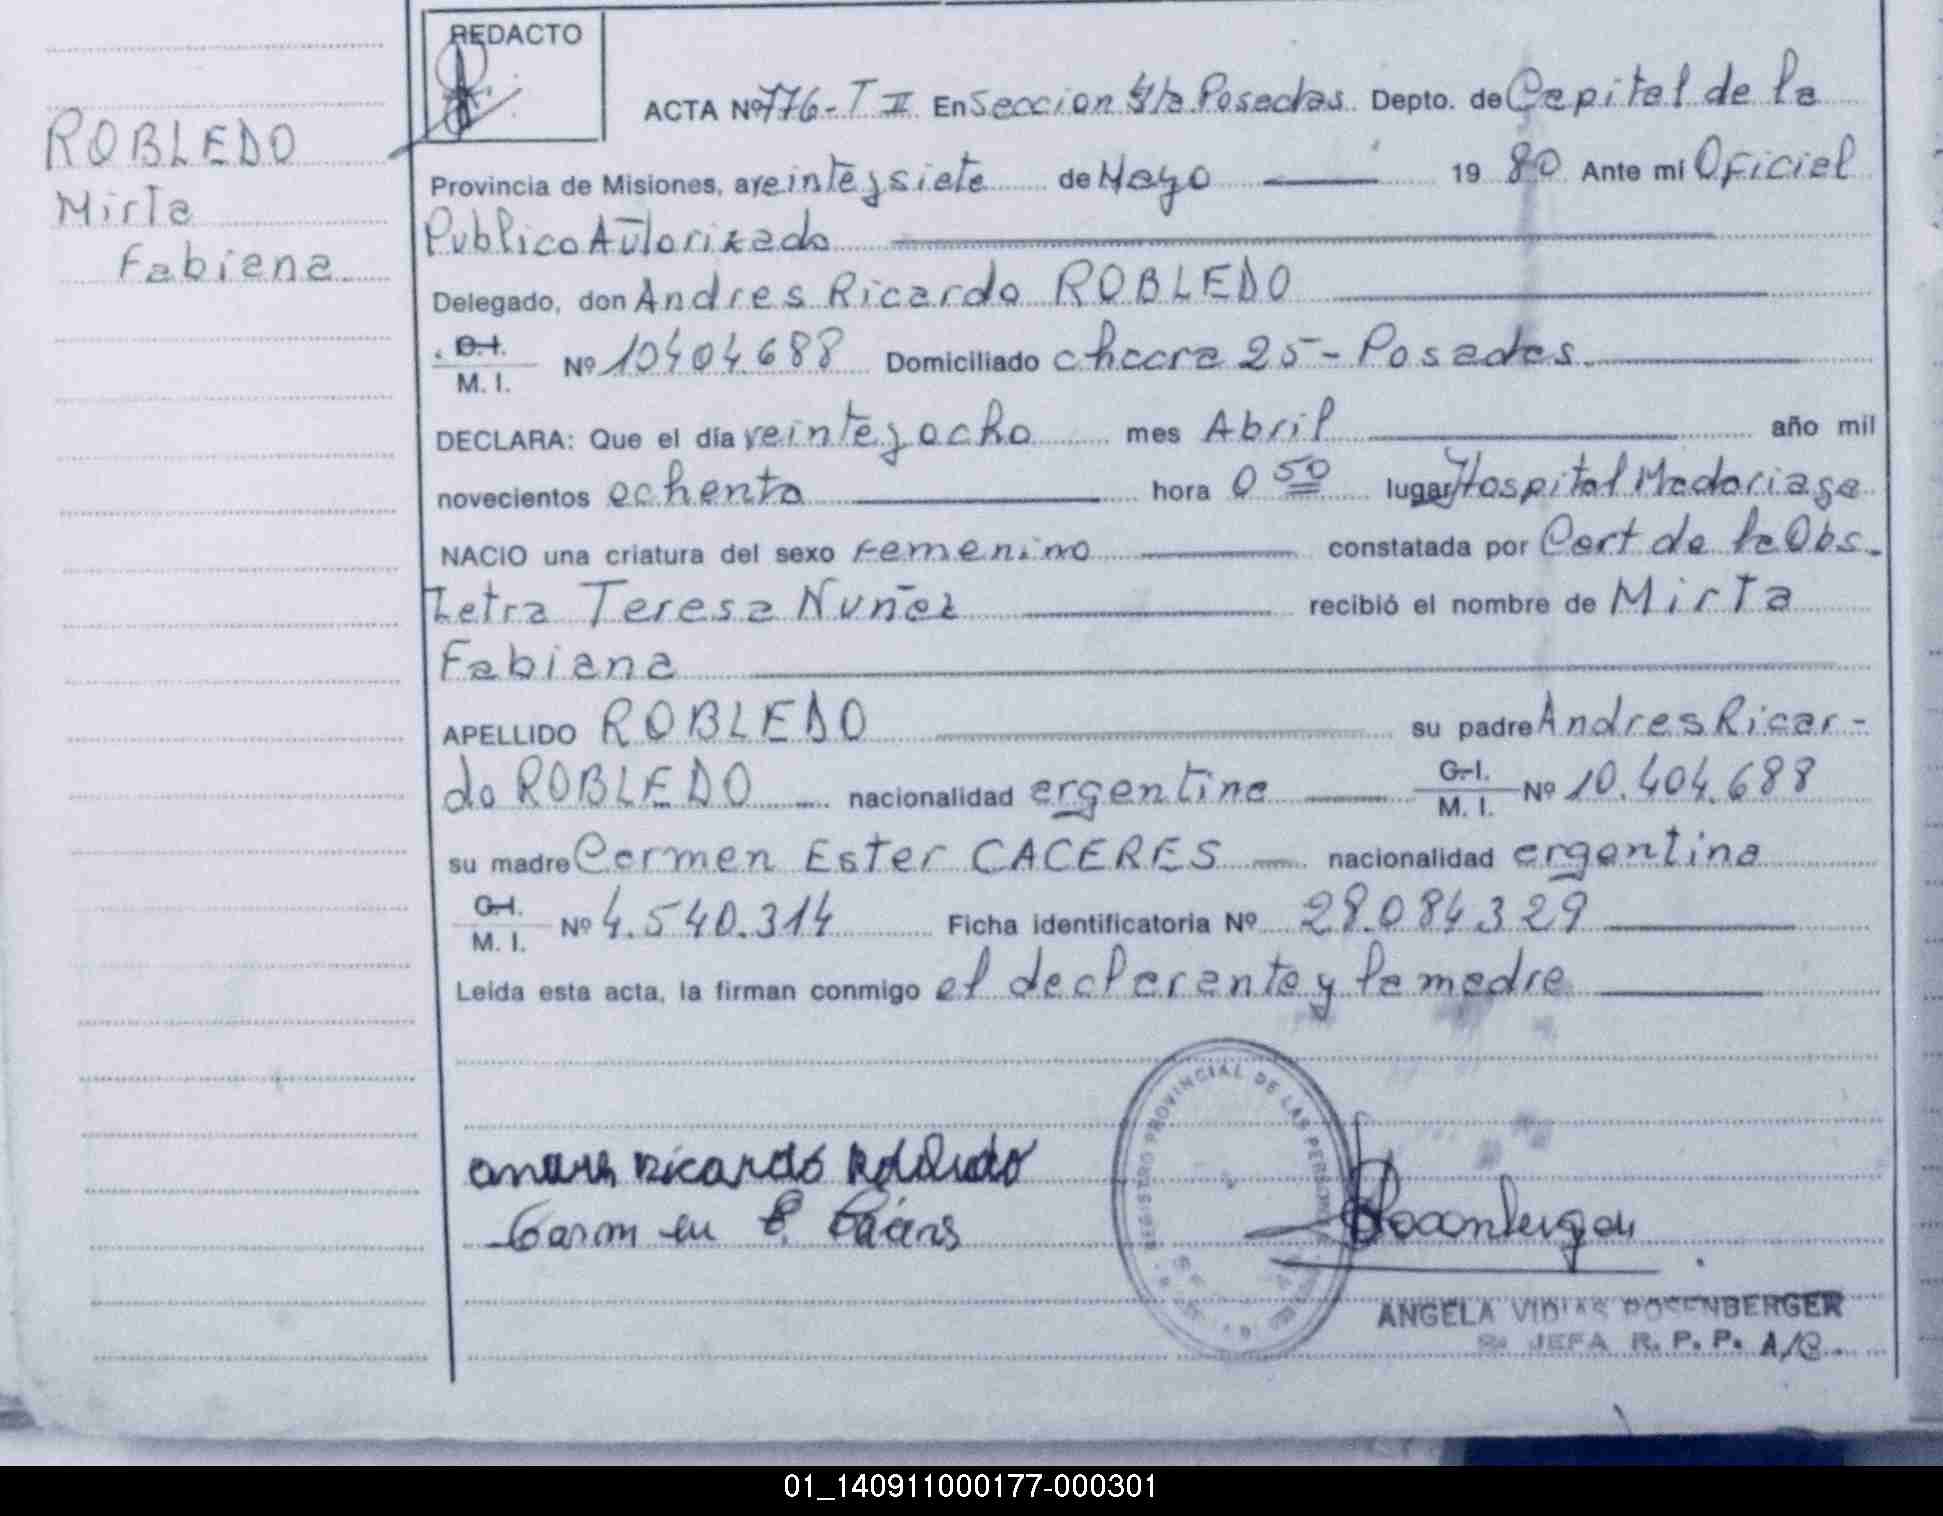 REDACTO
ACTA Nº 776-T II En Seccion 4ta Posadas Depto. de Capital de la
ROBLEDO
Mirta
Fabiana
Provincia de Misiones, a veinteysiete de Mayo 19 80 Ante mí Oficial
Publico Autorizado
Delegado, don Andres Ricardo ROBLEDO
C.I. M. I. Nº 10404.688 Domiciliado chacra 25 - Posadas.
DECLARA: Que el día veinteyocho mes Abril año mil
novecientos ochenta hora 0 50 lugar Hospital Madariaga
NACIO una criatura del sexo femenino constatada por Cert de la Obs.
Tetra Teresa Nuñez recibió el nombre de Mirta
Fabiana
APELLIDO ROBLEDO su padre Andres Ricar-
do ROBLEDO nacionalidad argentina C.I. M. I. Nº 10.404.688
su madre Carmen Ester CACERES nacionalidad argentina
C.I. M. I. Nº 4.540.314 Ficha identificatoria Nº 28.084.329
Leída esta acta, la firman conmigo el declarante y la madre
REGISTRO PROVINCIAL DE LAS PERSONAS
Ricardo Robledo
Carmen E.
ANGELA VIDIAS ROSENBERGER
JEFA R. P. P. A/C.
01_140911000177-000301